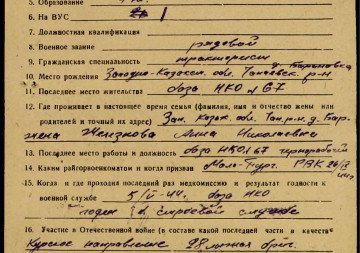 5. Образование
6. На ВУС 1
7. Должностная квалификация
8. Военное звание рядовой
9. Гражданская специальность тракторист
д. Барановка
10. Место рождения Западно-Казахст. обл. р-н
11. Последнее место жительства база НКО № 67
12. Где проживает в настоящее время семья (фамилия, имя и отчество жены или
родителей и точный их адрес) Зап. Казах. обл. р-н. д. Бар.
жена Железнова Анна Николаевна
13. Последнее место работы и должность база НКО № 67 чернорабочий
14. Каким райгорвоенкоматом и когда призван РВК
15. Когда и где проходил последний раз медкомиссию и результат годности к
военной службе 5/VI-44г. база НКО
годен к строевой службе
16. Участие в Отечественной войне (в составе какой последней части и качестве)
Курское направление 28 бриг.